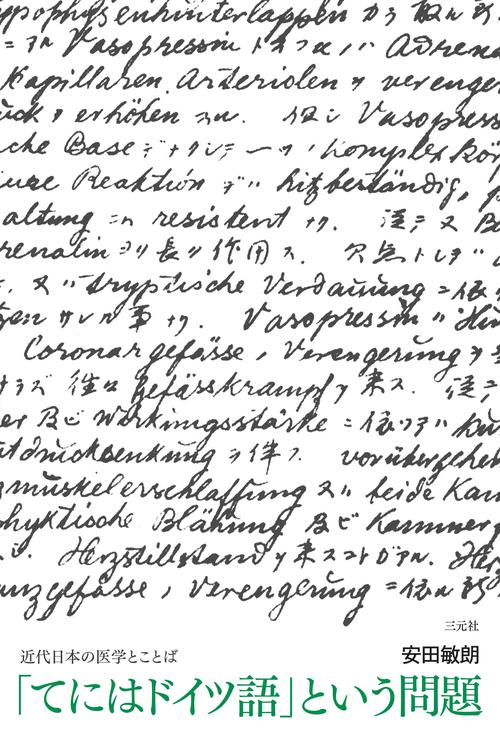 ypophysenhinterlappen カラ取ル
= テハ Vasopressin トハ Adrena
Kapillaren, Arteriolen ヲ verenge
ück ヲ erhöhen スル. 但シ Vasopress
che Base デナクシテ 一ツノ Komplex Kör
ure Reaktion デハ hitzbeständig,
altung ニハ resistent ナリ. 従テ又
renalin ヨリ長ク作用ス.
. 又ハ tryptische Verdauung ニ依
サレル事ナリ. Vasopressin ハ
Coronargefässe ノ Verengerung ヲ
往々 gefässkrampf ヲ来ス. 従テ
er 及ビ Wirkungsstärke ニ依ツテハ
utdrucksenkung ヲ伴フ. vorübergehe
zmuskelerschlaffung 又ハ beide Kam
phyktische Blähung 及ビ Kammer
Herzstillstand ヲ来スコトガアル. Her
anzgefässe ノ Verengerung ニ依ル
三元社
近代日本の医学とことば
安田敏朗
「てにはドイツ語」という問題